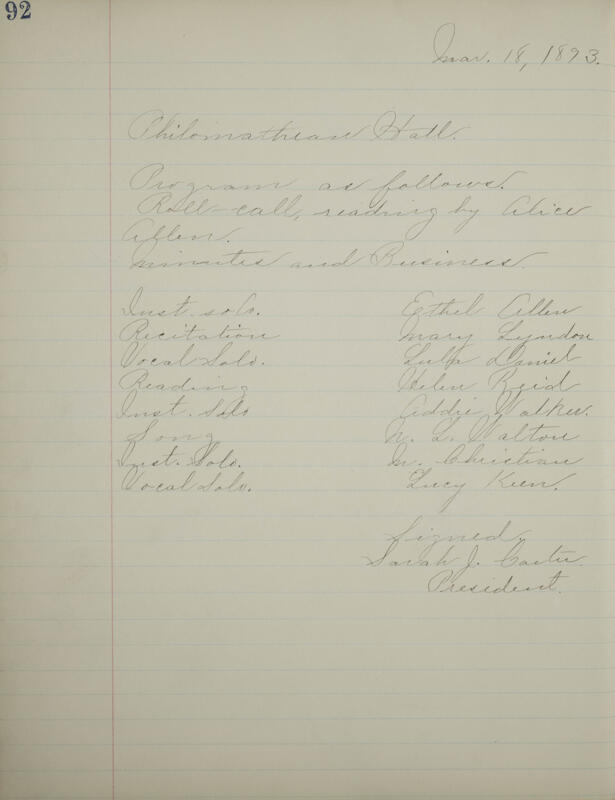 92
Mar. 18, 1893.
Philomathean Hall.
Program as follows.
Roll-call, reading by Alice
Allen.
Minutes and Business.
Inst. solo. Ethel Allen
Recitation Mary Lyndon
Vocal Solo. Lula Daniel
Reading Helen Reid
Inst. Solo Addie Walker.
Song N. L. Walton
Inst. Solo. M. Christian
Vocal Solo. Lucy Keen.
Signed,
Sarah J. Carter.
President.